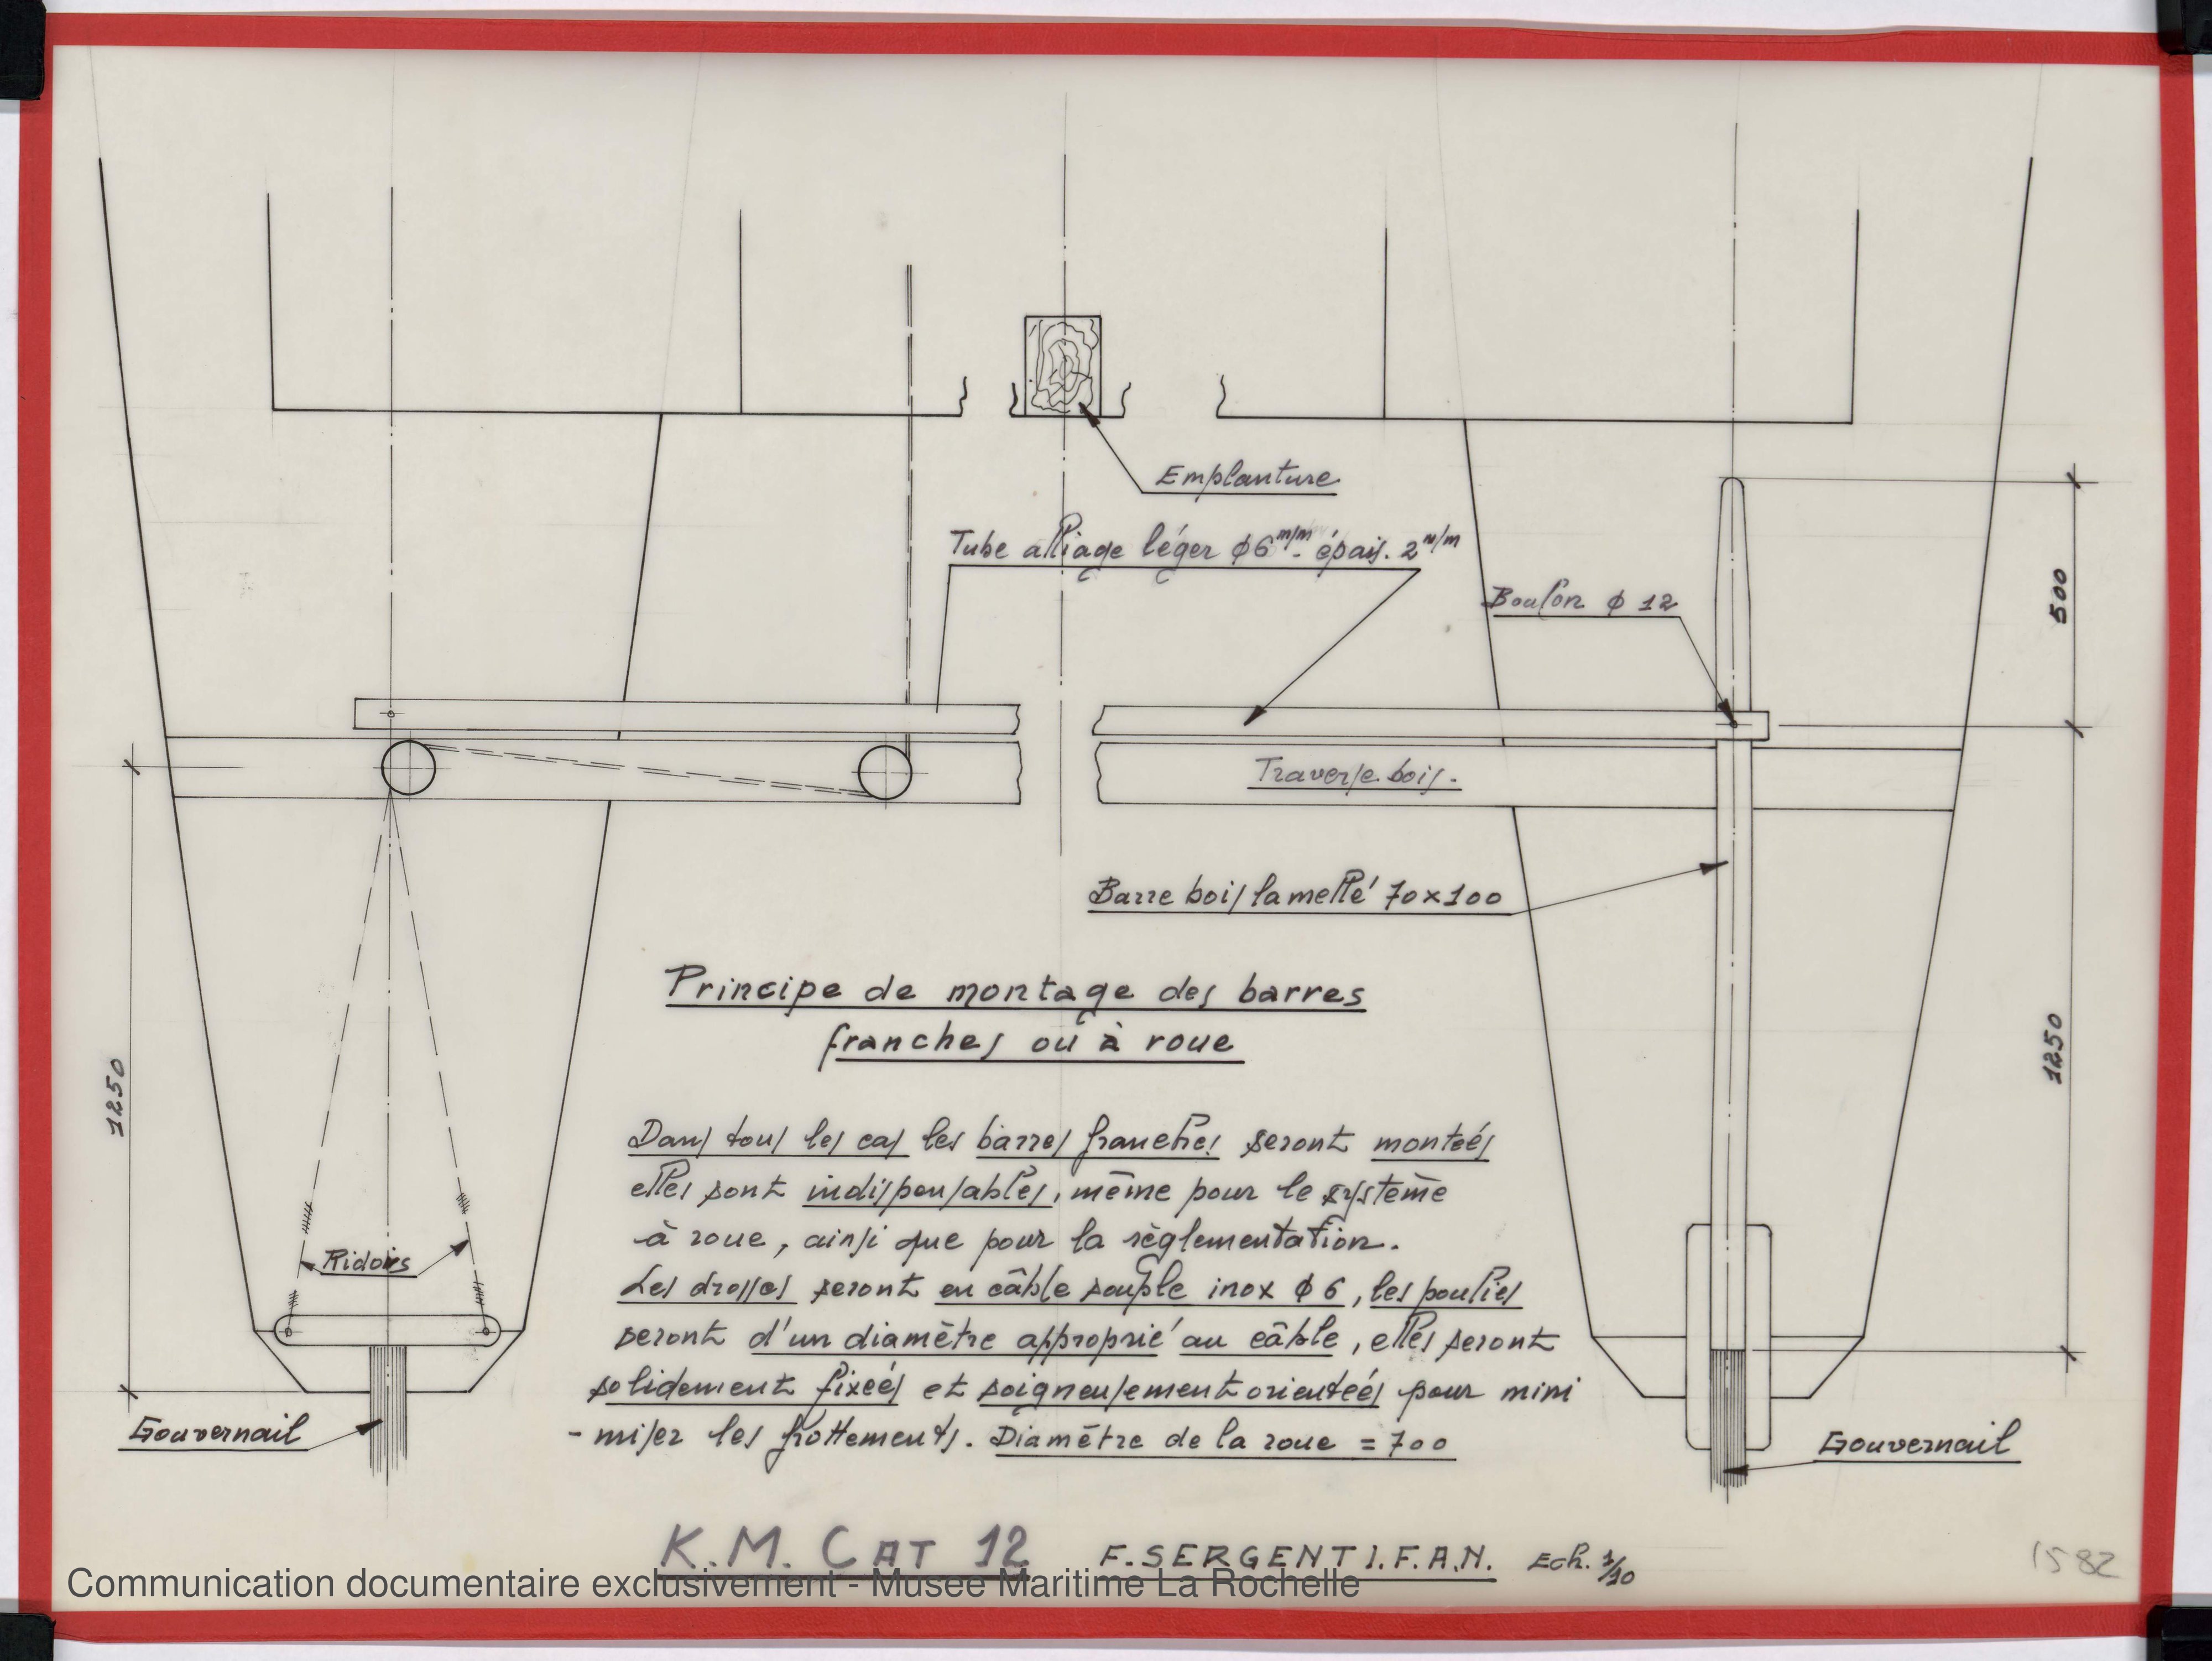 Emplanture
Tube alliage léger ϕ6m/m- épais. 2m/m
Boulon ϕ 12
500
Traverse bois.
Barre bois lamellé 70x100
Principe de montage des barres
franches ou à roue
1250
1250
Dans tous les cas les barres franches seront montées
elles sont indispensables, même pour le système
à roue, ainsi que pour la règlementation.
Ridoirs
Les drosses seront en câble souple inox ϕ 6, les poulies
seront d'un diamètre approprié au câble, elles seront
solidement fixées et soigneusement orientées pour mini
- miser les frottements. Diamètre de la roue = 700
Gouvernail
Gouvernail
K.M. CAT 12 F. SERGENT I.F.A.N. Ech. 1/10
1582
Communication documentaire exclusivement - Musée Maritime La Rochelle